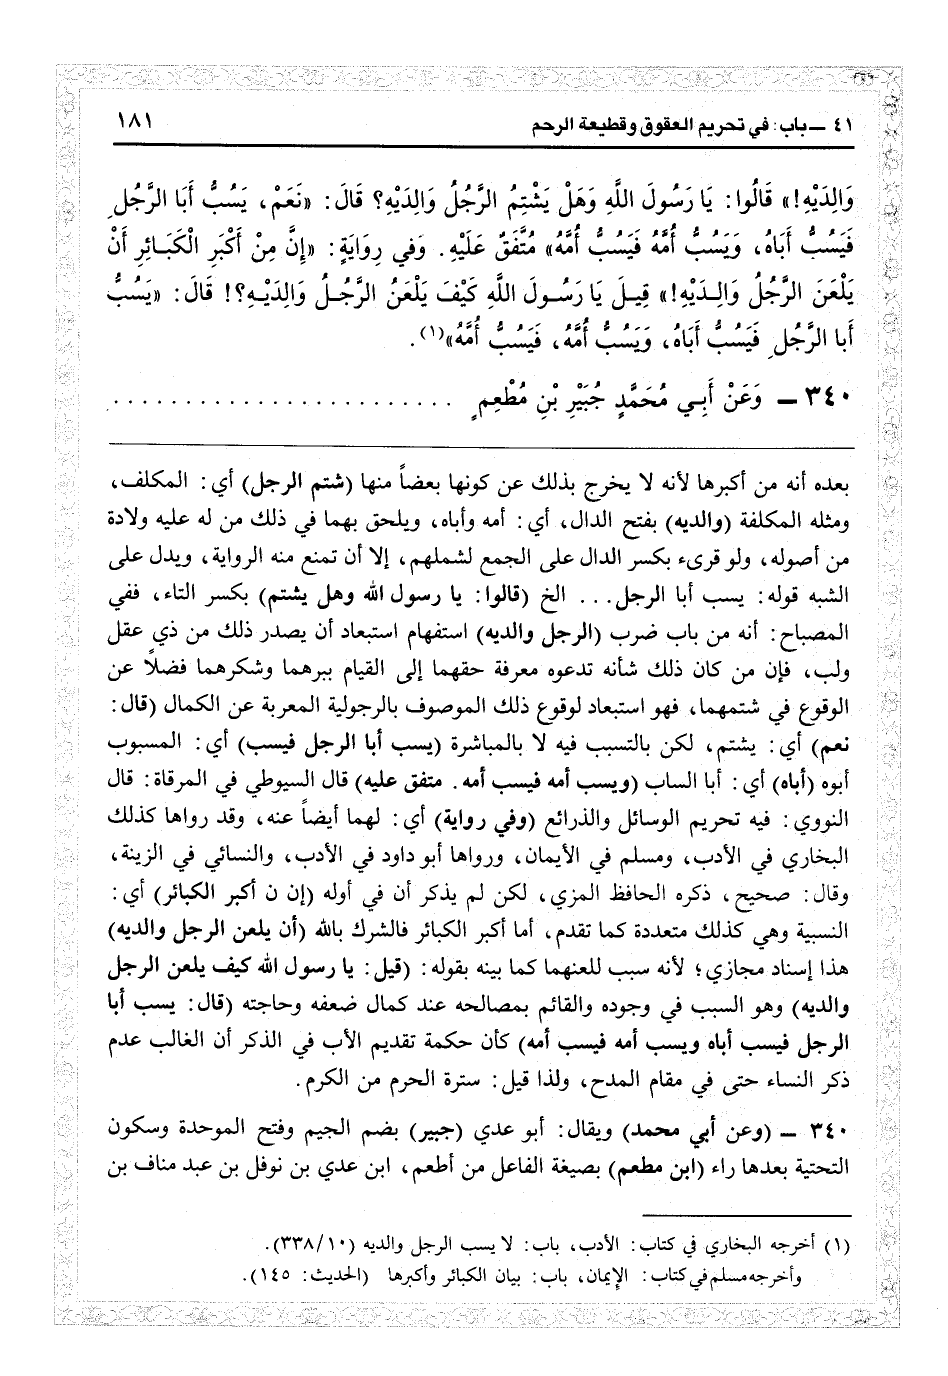 ٤١ ــ باب: في تحريم العقوق وقطيعة الرحم ١٨١
وَالِدَيْهِ!» قَالُوا: يَا رَسُولَ اللَّهِ وَهَلْ يَشْتِمُ الرَّجُلُ وَالِدَيْهِ؟ قَالَ: «نَعَمْ، يَسُبُّ أَبَا الرَّجُلِ
فَيَسُبُّ أَبَاهُ، وَيَسُبُّ أُمَّهُ فَيَسُبُّ أُمَّهُ» مُتَّفَقٌ عَلَيْهِ. وَفي رِوَايَةٍ: «إِنَّ مِنْ أَكْبَرِ الْكَبَائِرِ أَنْ
يَلْعَنَ الرَّجُلُ وَالِدَيْهِ!» قِيلَ يَا رَسُولَ اللهِ كَيْفَ يَلْعَنُ الرَّجُلُ وَالِدَيْهِ؟! قَالَ: «يَسُبُّ
أَبا الرَّجُلِ فَيَسُبُّ أَبَاهُ، وَيَسُبُّ أُمَّهُ، فَيَسُبُّ أُمَّهُ»(١).
٣٤٠ ــ وَعَنْ أَبِي مُحَمَّدٍ جُبَيْرِ بْنِ مُطْعِمٍ ........................
بعده أنه من أكبرها لأنه لا يخرج بذلك عن كونها بعضاً منها (شتم الرجل) أي: المكلف،
ومثله المكلفة (والديه) بفتح الدال، أي: أمه وأباه، ويلحق بهما في ذلك من له عليه ولادة
من أصوله، ولو قرىء بكسر الدال على الجمع لشملهم، إلا أن تمنع منه الرواية، ويدل على
الشبه قوله: يسب أبا الرجل... الخ (قالوا: يا رسول الله وهل يشتم) بكسر التاء، ففي
المصباح: أنه من باب ضرب (الرجل والديه) استفهام استبعاد أن يصدر ذلك من ذي عقل
ولب، فإن من كان ذلك شأنه تدعوه معرفة حقهما إلى القيام ببرهما وشكرهما فضلاً عن
الوقوع في شتمهما، فهو استبعاد لوقوع ذلك الموصوف بالرجولية المعربة عن الكمال (قال:
نعم) أي: يشتم، لكن بالتسبب فيه لا بالمباشرة (يسب أبا الرجل فيسب) أي: المسبوب
أبوه (أباه) أي: أبا الساب (ويسب أمه فيسب أمه. متفق عليه) قال السيوطي في المرقاة: قال
النووي: فيه تحريم الوسائل والذرائع (وفي رواية) أي: لهما أيضاً عنه، وقد رواها كذلك
البخاري في الأدب، ومسلم في الأيمان، ورواها أبو داود في الأدب، والنسائي في الزينة،
وقال: صحيح، ذكره الحافظ المزي، لكن لم يذكر أن في أوله (إن ن أكبر الكبائر) أي:
النسبية وهي كذلك متعددة كما تقدم، أما أكبر الكبائر فالشرك بالله (أن يلعن الرجل والديه)
هذا إسناد مجازي؛ لأنه سبب للعنهما كما بينه بقوله: (قيل: يا رسول الله كيف يلعن الرجل
والديه) وهو السبب في وجوده والقائم بمصالحه عند كمال ضعفه وحاجته (قال: يسب أبا
الرجل فيسب أباه ويسب أمه فيسب أمه) كأن حكمة تقديم الأب في الذكر أن الغالب عدم
ذكر النساء حتى في مقام المدح، ولذا قيل: سترة الحرم من الكرم.
٣٤٠ ــ (وعن أبي محمد) ويقال: أبو عدي (جبير) بضم الجيم وفتح الموحدة وسكون
التحتية بعدها راء (ابن مطعم) بصيغة الفاعل من أطعم، ابن عدي بن نوفل بن عبد مناف بن
(١) أخرجه البخاري في كتاب: الأدب، باب: لا يسب الرجل والديه (٣٣٨/١٠).
وأخرجه مسلم في كتاب: الإيمان، باب: بيان الكبائر وأكبرها (الحديث: ١٤٥).